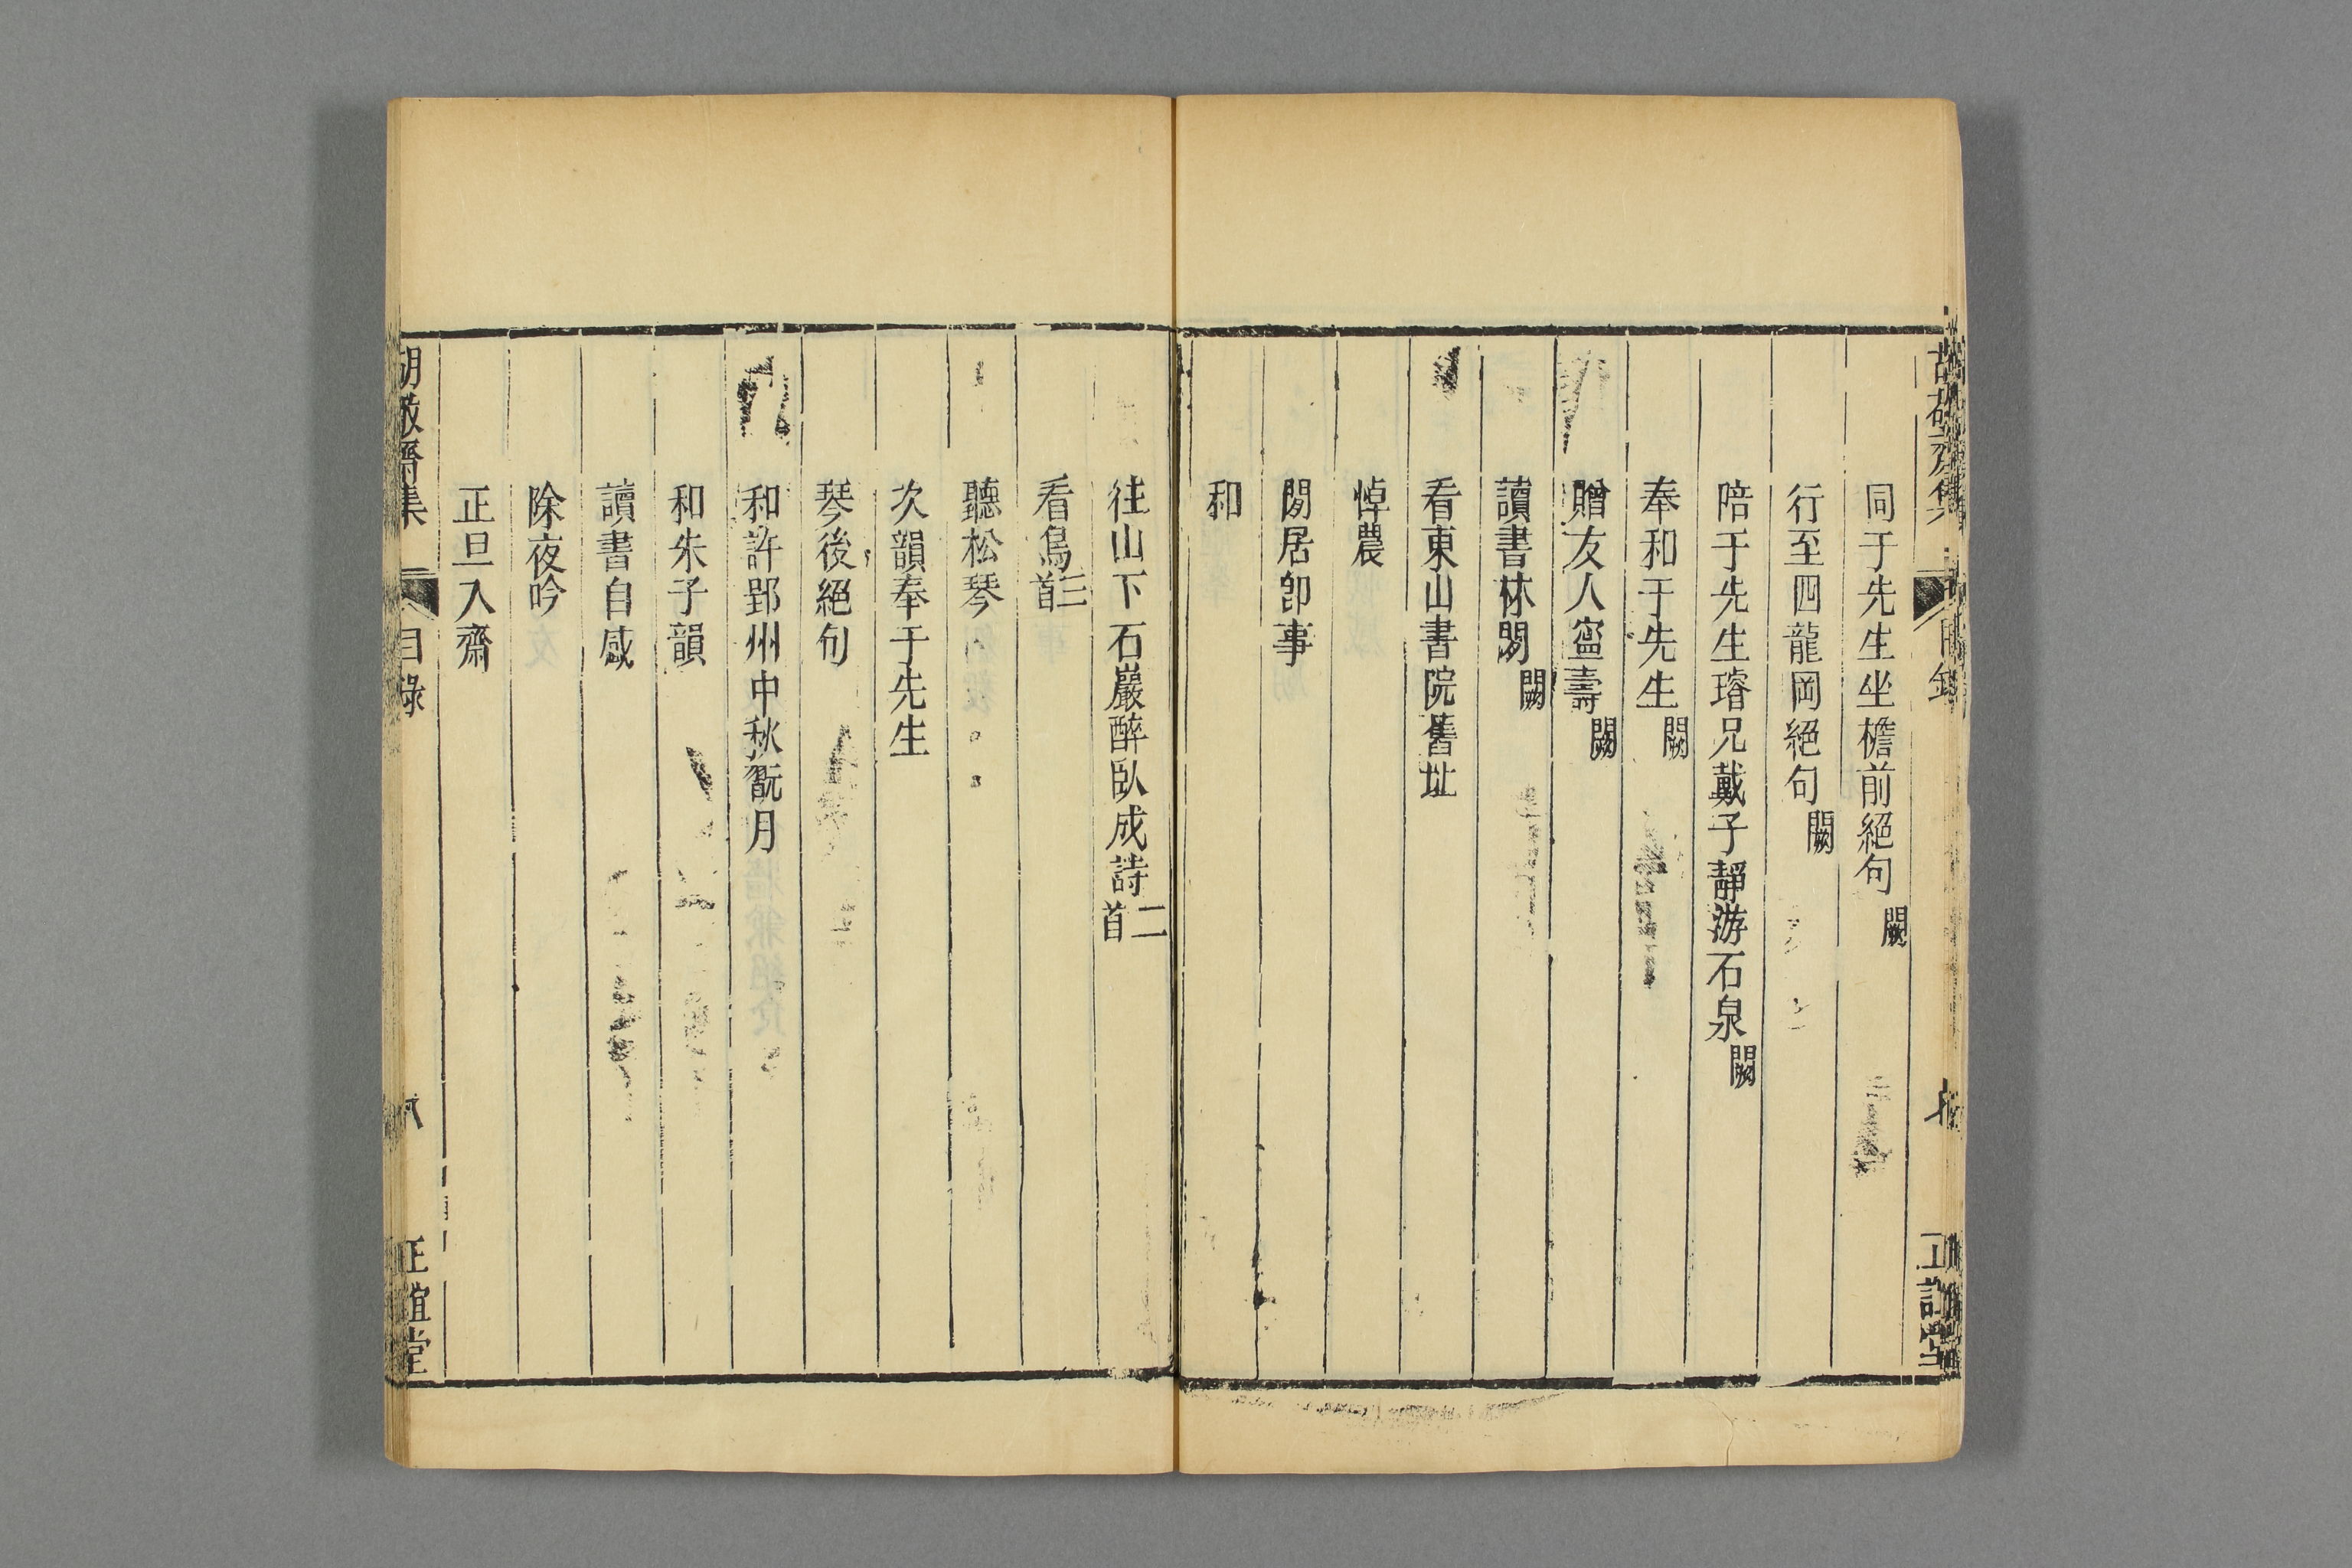 同于先生坐檐前絕句闕
行至四龍岡絕句闕
陪于先生璿兄戴子靜游石泉闕
奉和于先生闕
贈友人寍壽闕
讀書林閒闕
看東山書院舊址
悼農
閒居卽事
和
往山下石巖醉臥成詩二首
看鳥三首
聽松琴
次韻奉于先生
琴後絕句
和許郢州中秋翫月
和朱子韻
讀書自感
除夜吟
正旦入齋
胡敬齋集
目錄
正誼堂